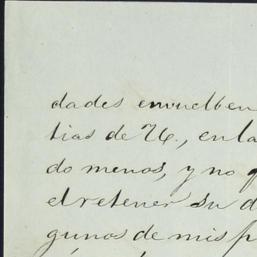 dades envuelben
tias de V., en la
do menos, y no
el retener su d
gunos de mis p